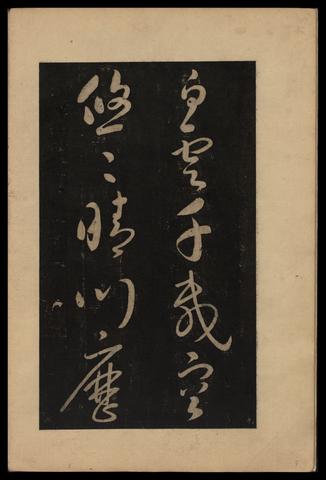 白雲千載空
悠々晴川歷